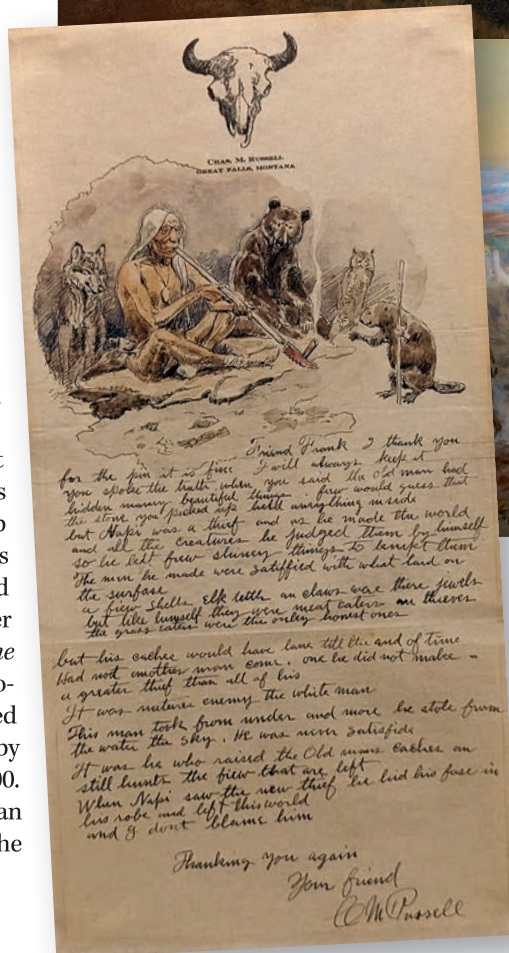 CHAS. M. RUSSELL
GREAT FALLS, MONTANA
Friend Frank I thank you
for the pin it is fine I will always keep it
you spoke the truth when you said the old man had
hidden many beautiful things. few would guess that
the stone you picked up held anything inside
but Napi was a thief and as he made the world
and all the creatures he judged them by himself
so he left few shiney things to tempt them
The men he made were satisfied with what lard on
the surface
a fiew shells Elk teeth an claws were there jewels
but like himself they were meat eaters an thieves
the grass eaters were the onley honest ones
but his caches would have lane till the end of time
Had not another man come. one he did not make –
a greater thief than all of his
It was natures enemy the white man
This man took from under and more he stole from
the water the sky. He was never satisfide
It was he who raised the Old mans caches an
still hunts the fiew that are left
When Napi saw the new thief he hid his fase in
his robe and left this world
and I dont blame him
Thanking you again
Your friend
CM Russell
t
s
o
s
d
er
ne
o-
ed
by
00.
an
he